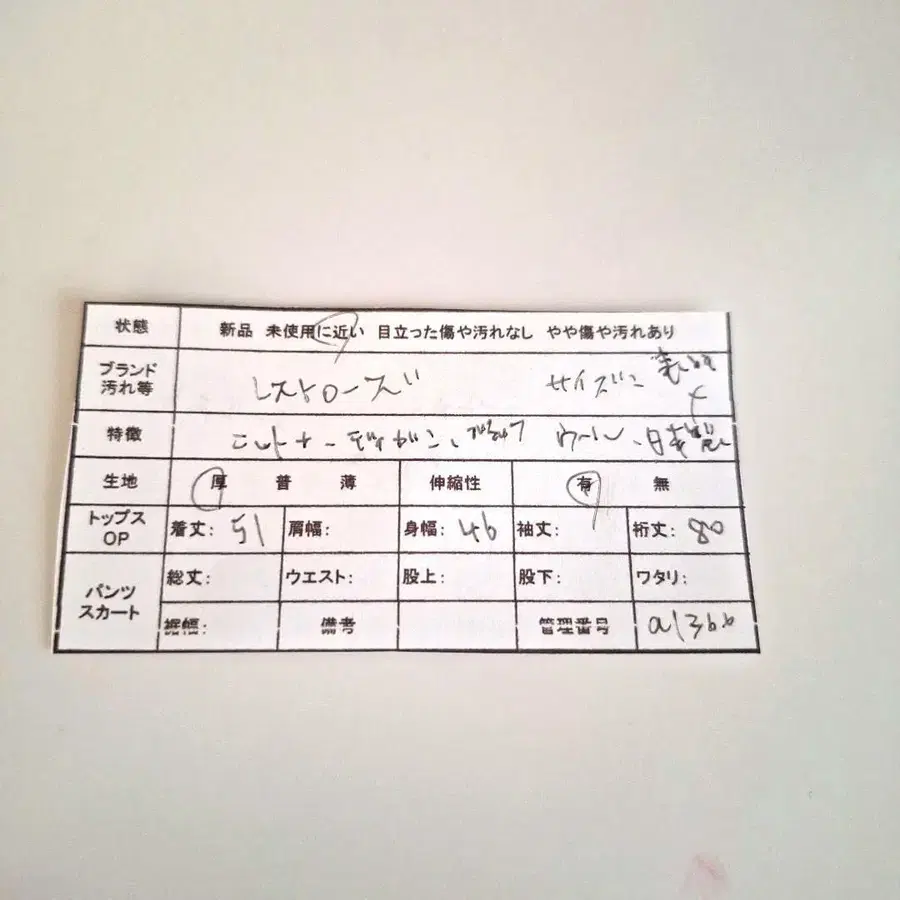 状態 新品 未使用に近い 目立った傷や汚れなし やや傷や汚れあり
ブランド 汚れ等 レストローズ サイズ 表記
特徴 ニットカーディガン、 ウール、日本製
生地 厚 普 薄 伸縮性 有 無
トップス OP 着丈: 51 肩幅: 身幅: 46 袖丈: 裄丈: 80
パンツ スカート 総丈: ウエスト: 股上: 股下: ワタリ:
裾幅: 備考 管理番号